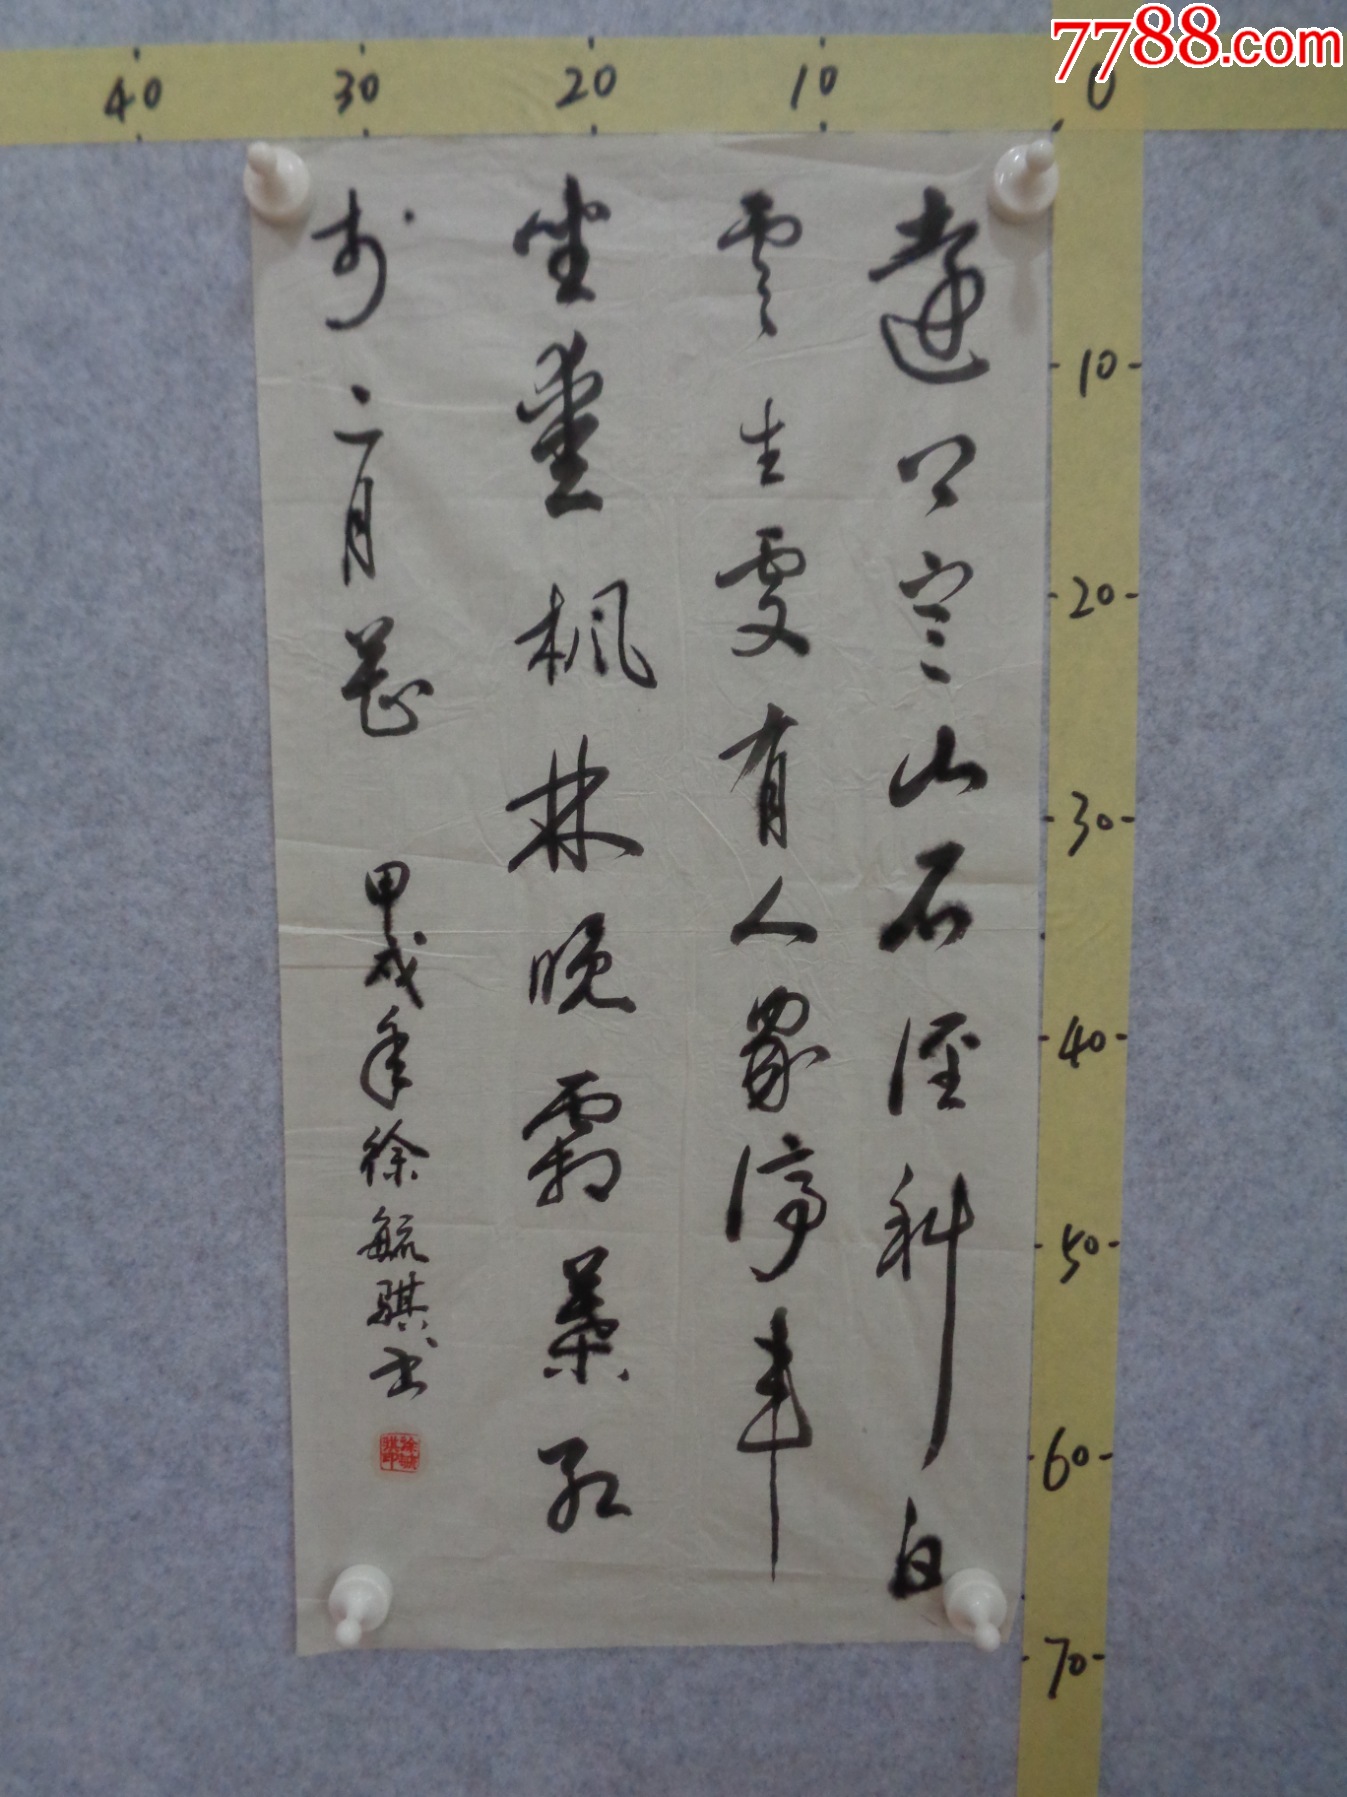 7788.com
40 30 20 10 0
遠上寒山石徑斜白
雲生處有人家停車
坐愛枫林晚霜葉红
於二月花 甲戌年徐毓騏书
10
20
30
40
50
60
70